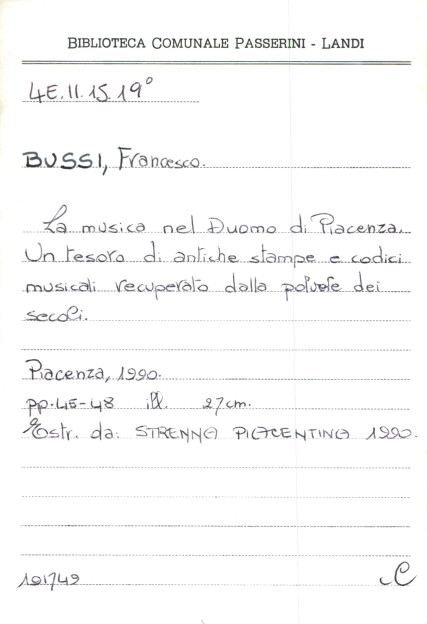 BIBLIOTECA COMUNALE PASSERINI - LANDI
4E.II.15.19°
BUSSI, Francesco.
La musica nel Duomo di Piacenza.
Un tesoro di antiche stampe e codici
musicali recuperato dalla polvere dei
secoli.
Piacenza, 1990.
pp. 45-48 ill. 27 cm.
Estr. da: STRENNA PIACENTINA 1990.
191749
C